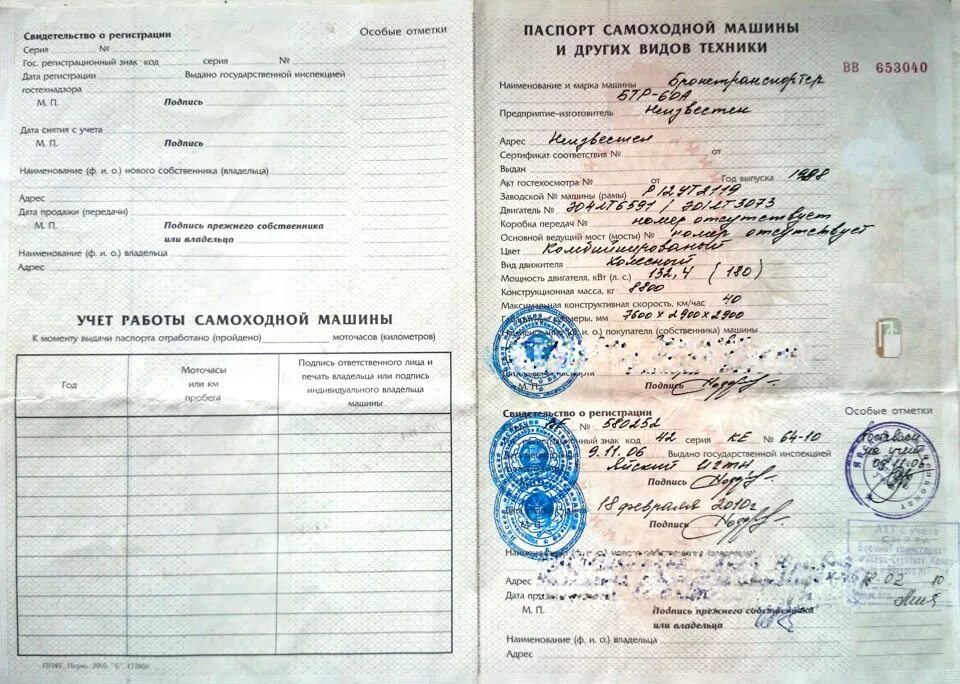 Свидетельство о регистрации
Особые отметки
Серия №
Гос. регистрационный знак код серия №
Дата регистрации Выдано государственной инспекцией
гостехнадзора
М. П. Подпись
Дата снятия с учета
М. П. Подпись
Наименование (ф. и о.) нового собственника (владельца)
Адрес
Дата продажи (передачи)
М. П. Подпись прежнего собственника
или владельца
Наименование (ф. и о.) владельца
Адрес
УЧЕТ РАБОТЫ САМОХОДНОЙ МАШИНЫ
К моменту выдачи паспорта отработано (пройдено) моточасов (километров)
Год
Моточасы
или км
пробега
Подпись ответственного лица и
печать владельца или подпись
индивидуального владельца
машины
ППФГ, Пермь, 2005, "Б",
ПАСПОРТ САМОХОДНОЙ МАШИНЫ
И ДРУГИХ ВИДОВ ТЕХНИКИ
ВВ 653040
Наименование и марка машины Бронетранспортер
БТР-60А
Предприятие-изготовитель Неизвестен
Адрес Неизвестен
Сертификат соответствия № от
Выдан
Акт гостехосмотра № от Год выпуска 1988
Заводской № машины (рамы) Р12УТ2119
Двигатель № ЭО42Т6591 / ЭО12Т3073
Коробка передач № номер отсутствует
Основной ведущий мост (мосты) № номер отсутствует
Цвет Комбинированый
Вид движителя Колесный
Мощность двигателя, кВт (л. с.) 132,4 (180)
Конструкционная масса, кг 8800
Максимальная конструктивная скорость, км/час 40
размеры, мм 7600 х 2900 х 2900
(ф. и о.) покупателя (собственника) машины
паспорта
М. П. Подпись
Свидетельство о регистрации
Особые отметки
ВЕ № 580252
знак код 42 серия КЕ № 64-10
9.11.06 Выдано государственной инспекцией
Яйский ИГТН
Подпись
18 февраля 2010г
Подпись
Поставлен
на учет
нового собственника (владельца)
Адрес
Дата
02 10
М. П. Подпись прежнего собственника
или владельца
Наименование (ф. и о.) владельца
Адрес